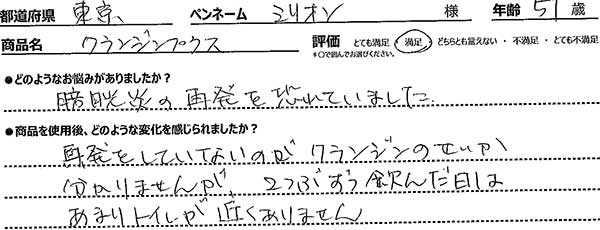 都道府県 東京 ペンネーム ミリオン 様 年齢 51 歳
商品名 クランジンプラス 評価 とても満足・満足・どちらとも言えない・不満足・とても不満足
*○で囲んでお選びください。
●どのようなお悩みがありましたか?
膀胱炎の再発を恐れていました。
●商品を使用後、どのような変化を感じられましたか?
再発をしていないのがクランジンのせいか
分かりませんが 2つぶずつ飲んだ日は
あまりトイレが近くありません